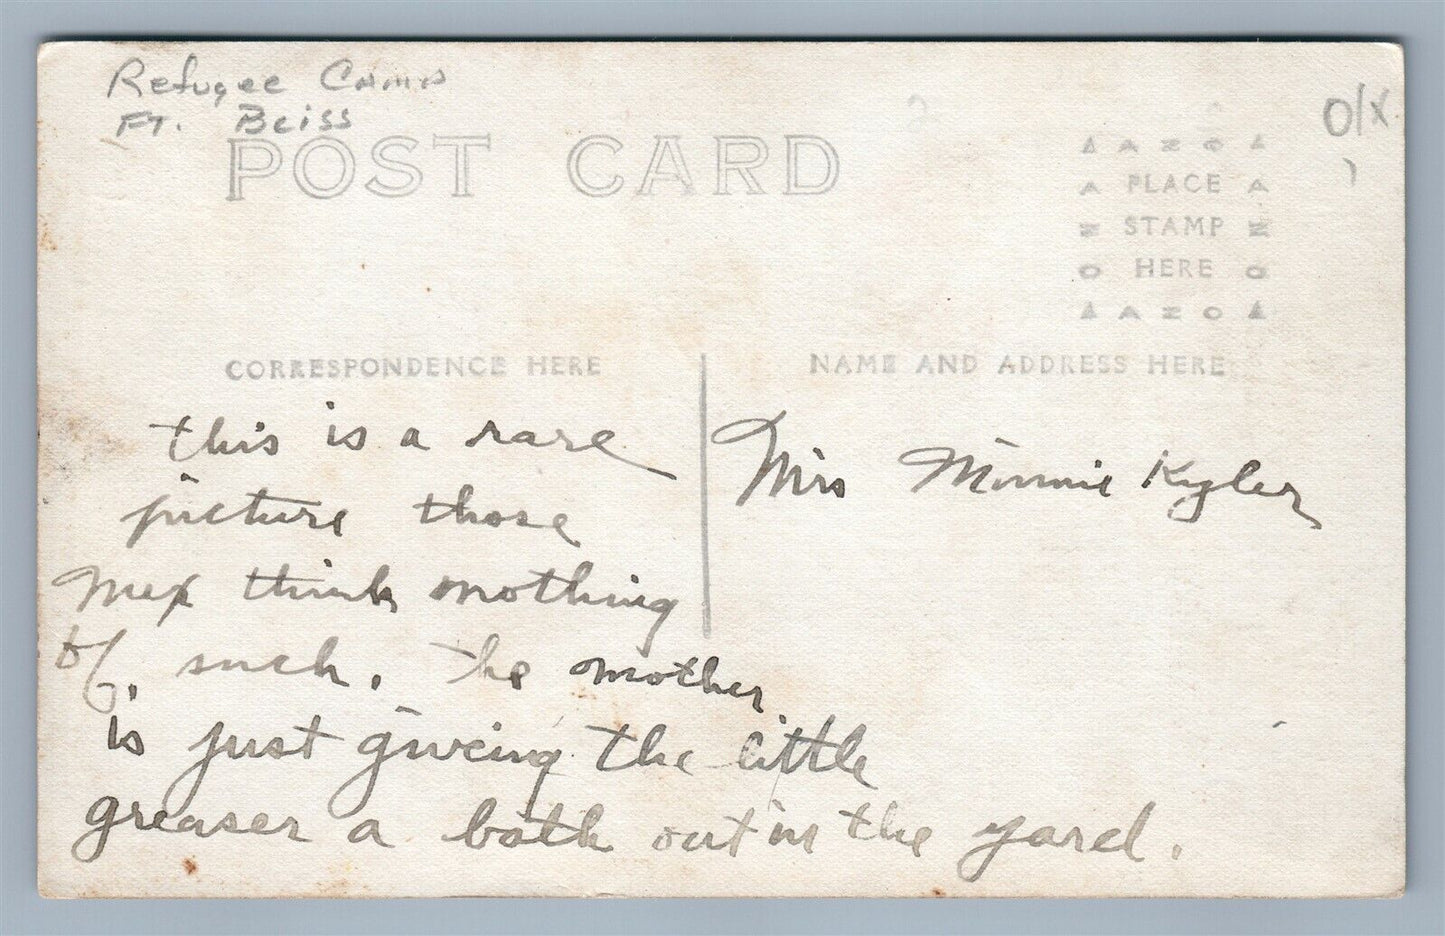 Refugee Camp
Ft. Beiss
O/X
POST CARD
AZO
PLACE
STAMP
HERE
AZO
CORRESPONDENCE HERE
NAME AND ADDRESS HERE
this is a rare
picture those
Mex think nothing
of such. The mother
is just giveing the little
greaser a bath out in the yard.
Mrs Minnie Kyler